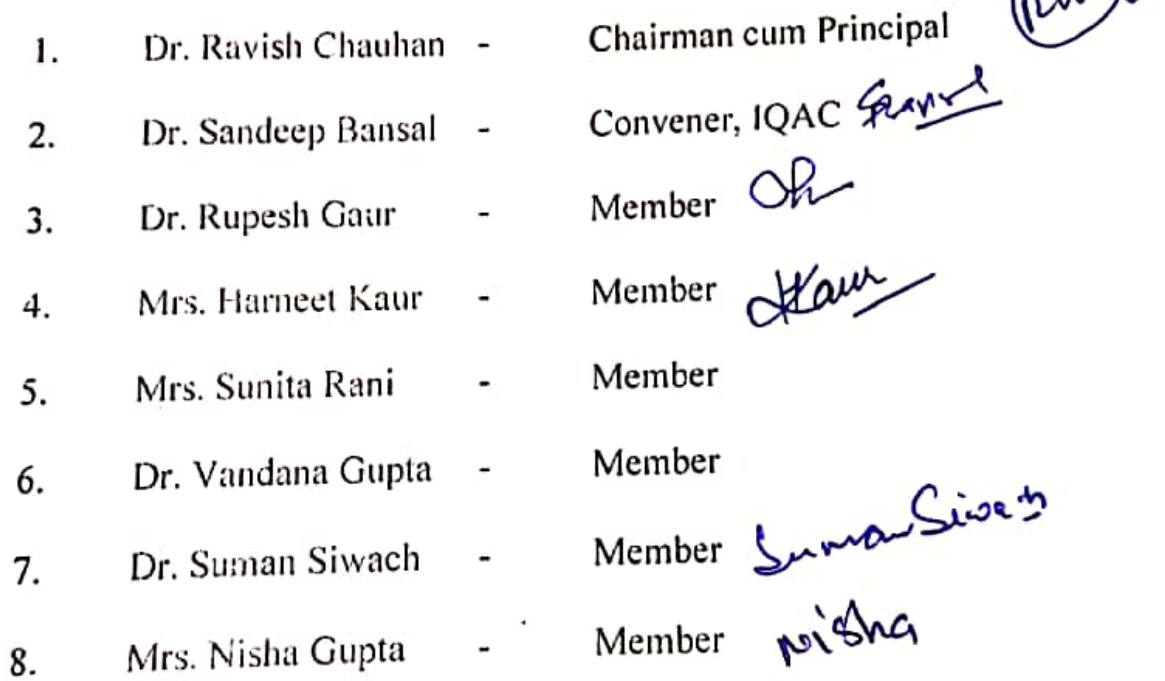 1. Dr. Ravish Chauhan - Chairman cum Principal
2. Dr. Sandeep Bansal - Convener, IQAC
3. Dr. Rupesh Gaur - Member
4. Mrs. Harneet Kaur - Member Kaur
5. Mrs. Sunita Rani - Member
6. Dr. Vandana Gupta - Member
7. Dr. Suman Siwach - Member Suman Siwach
8. Mrs. Nisha Gupta - Member Nisha